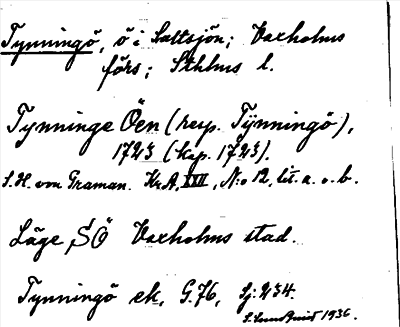 Tynningö, ö i Saltsjön; Vaxholms
förs; Sthlms l.
Tynninge Öen (resp. Tÿnningö),
1723 (kop. 1723).
S.H. von Graman. Kr.A, XVII, N:o 12, lit. a. o. b.
Läge SÖ Vaxholms stad.
Tynningö ek, G.76, Sj: 234.
S. Lundquist 1936.